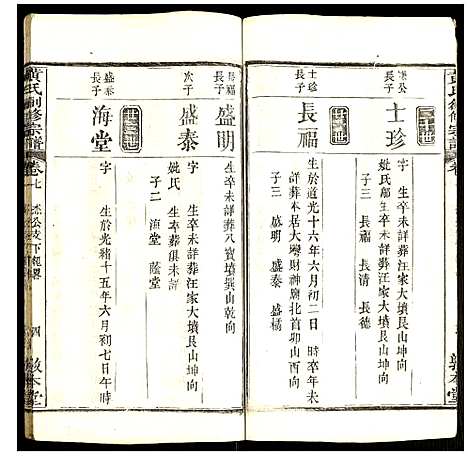 黃氏創修宗譜
士珍
生卒未詳葬汪家大墳艮山坤向
子三 長福 長清 長德
士珍
長子
長福
生於道光十六年六月初二日 時卒年未
詳葬本居大灣財神廟北首卯山酉向
子三 盛明 盛泰 盛橘
長福
長子
盛明
生卒未詳葬八寶墳巽山乾向
次子
盛泰
字 生卒未詳葬汪家大墳艮山坤向
妣氏 生卒葬俱未詳
子二 海堂 蔭堂
盛泰
長子
海堂
字 生於光緒十五年六月初七日午時
黃氏創修宗譜
卷七
四
敦本堂